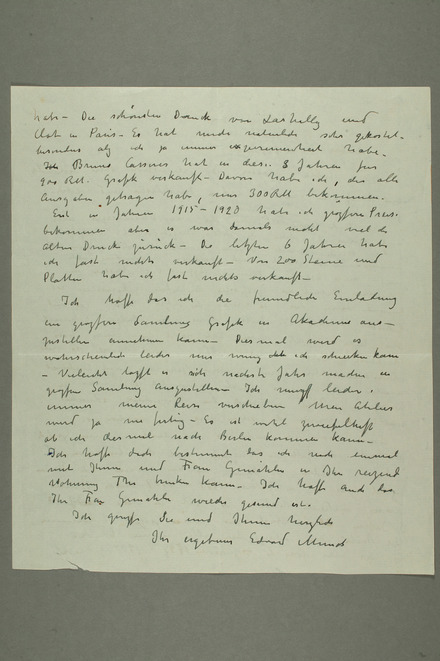 habe – Die schönsten Drucke von Lassally und
Clot in Paris – Es hat mich natürlich sehr gekostet –
besonders als ich ja immer experimentiert habe.
Bruno Cassirer hat in diesen 8 Jahren für
900 RM. Grafik verkauft – Davon habe ich, der alle
Ausgaben getragen habe, nur 300 RM bekommen.
Erst in Jahren 1915 – 1920 habe ich grössere Preise
bekommen aber es war damals nicht viel der
alten Drucke zurück – Die letzten 6 Jahren habe
ich fast nichts verkauft – Von 200 Steine und
Platten habe ich fast nichts verkauft –
Ich hoffe das ich die freundliche Einladung
eine grössere Sammlung Grafik in Akademie aus-
zustellen annehmen kann – Diesmal wird es
wahrscheinlich leider nur wenig das ich schicken kann
– Vielleicht lässt es sich nächste Jahr machen eine
grössere Sammlung auszustellen – Ich muss leider
immer meine Reise verschieben Mein Atelier
wird ja nie fertig – Es ist wohl zweifelhaft
ob ich diesmal nach Berlin kommen kann –
Ich hoffe doch bestimmt das ich noch einmal
mit Ihnen und Frau Gemahlin in Ihr reizend
Wohnung Thee trinken kann – Ich hoffe auch das
Ihr Frau Gemahlin wieder gesund ist –
Ich grüsse Sie und Ihnen herzlich
Ihr ergebener Edvard Munch